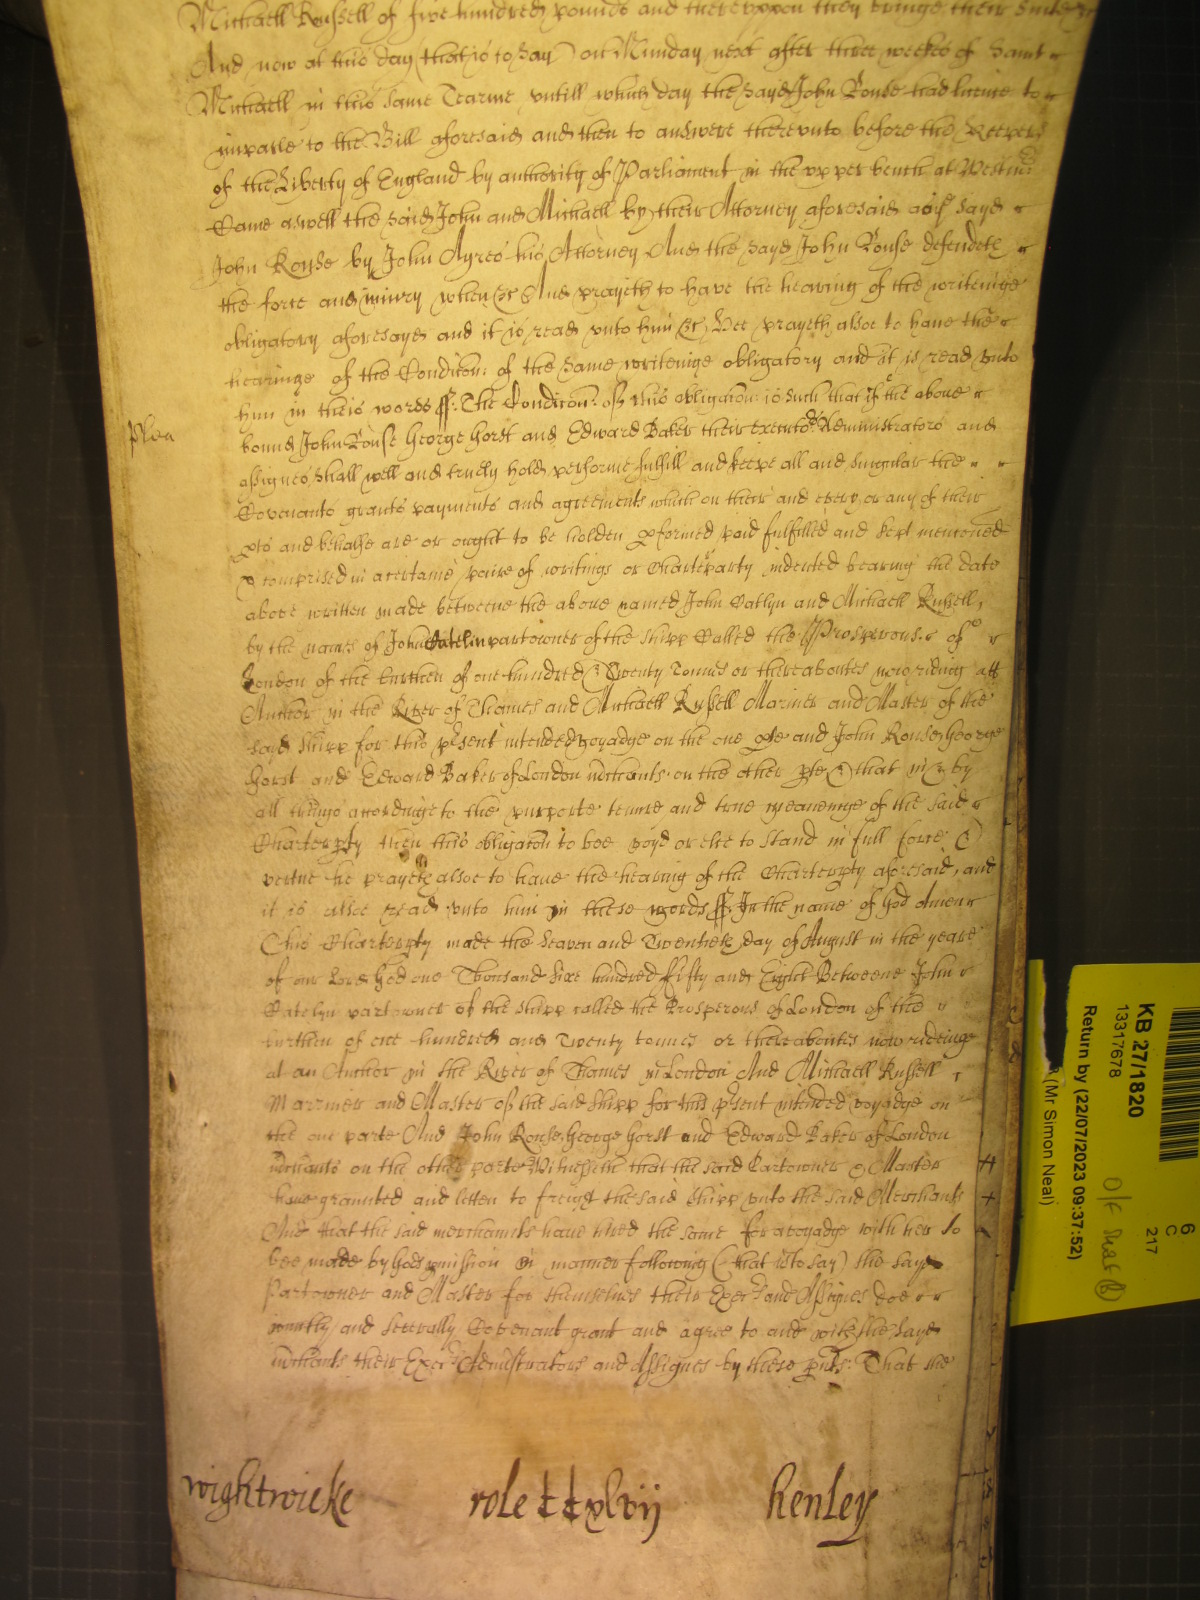 Michaell Russell of five hundred pounds and thereuppon they bringe their suite &c
And now at this day (that is to say) on Munday next after three weekes of Saint
Michaell in this same Tearme untill which day the sayd John Rouse had licence to
imparle to the Bill aforesaid and then to answere thereunto before the Keepers
of the Liberty of England by authority of Parliament in the upper bench at Westmr
Came aswell the said John and Michaell by their Attorney aforesaid as the sayd
John Rouse by John Ayres his Attorney And the sayd John Rouse defendeth
the force and iniury when &c And prayeth to have the hearing of the writeinge
obligatory aforesayd and it is read unto him &c Hee prayeth alsoe to have the
hearinge of the Condicon of the same writeinge obligatory and it is read unto
him in theis words ss: The Condicon of this obligacon is such that if the above
Plea
bound John Rouse George Horst and Edward Baker their executors Administrators and
assignes shall well and truely hold performe fulfill and keepe all and singular the
Covenants grants payments and agreements which on their and every or any of their
pts and behalfe are or ought to be holden pformed paid fulfilled and kept mencioned
& comprised in a certaine paire of writings or Charteparty indented bearing the date
above written made betweene the above named John Catlyn and Michaell Russell,
by the names of John Catelin partowner of the shipp Called the Prosperous of
London of the burthen of one hundred & Twenty Tonnes or thereaboutes now riding att
Anchor in the River of Thames and Michaell Russell Mariner and Master of the
sayd shipp for this psent intended voyadge on the one pte and John Rouse George
Horst and Edward Baker of London mchants on the other pte & that in & by
all things accordinge to the purporte tenure and true meaneinge of the said
Charterpty then this obligacon to bee voyd or else to stand in full force &
vertue he prayeth alsoe to have the hearing of the Charterpty aforesaid, and
it is alsoe read unto him in these words ss In the name of God Amen
This Charterpty made the Seaven and Twentieth day of August in the yeare
of our Lord God one Thousand sixe hundred fifty and Eight Betweene John
Catelyn partowner of the shipp called the Prosperous of London of the
burthen of one hundred and Twenty tonnes or thereaboutes now rideinge
at an Anchor in the River of Thames in London And Michaell Russell
Marriner and Master of the said shipp for this psent intended voyadge on
the one parte And John Rouse George Horst and Edward Baker of London
mchants on the other parte Witnesseth that the said Partowner & Master
have graunted and letten to freight the said shipp unto the said Merchants
And that the said merchannts have hired the same for a voyadge with her to
bee made by Gods pmission in manner following (that is to say) the sayd
Partowner and Master for themselves their Execrs and Assignes doe
joyntly and severally Covenant grant and agree to and with the sayd
mchants their Execrs Administrators and Assignes by these pnts: That the
wightwicke role ccxlvij henley
KB 27/1820
13317678
Return by (22/07/2023 09:37:52)
(Mr Simon Neal)
6
C
217